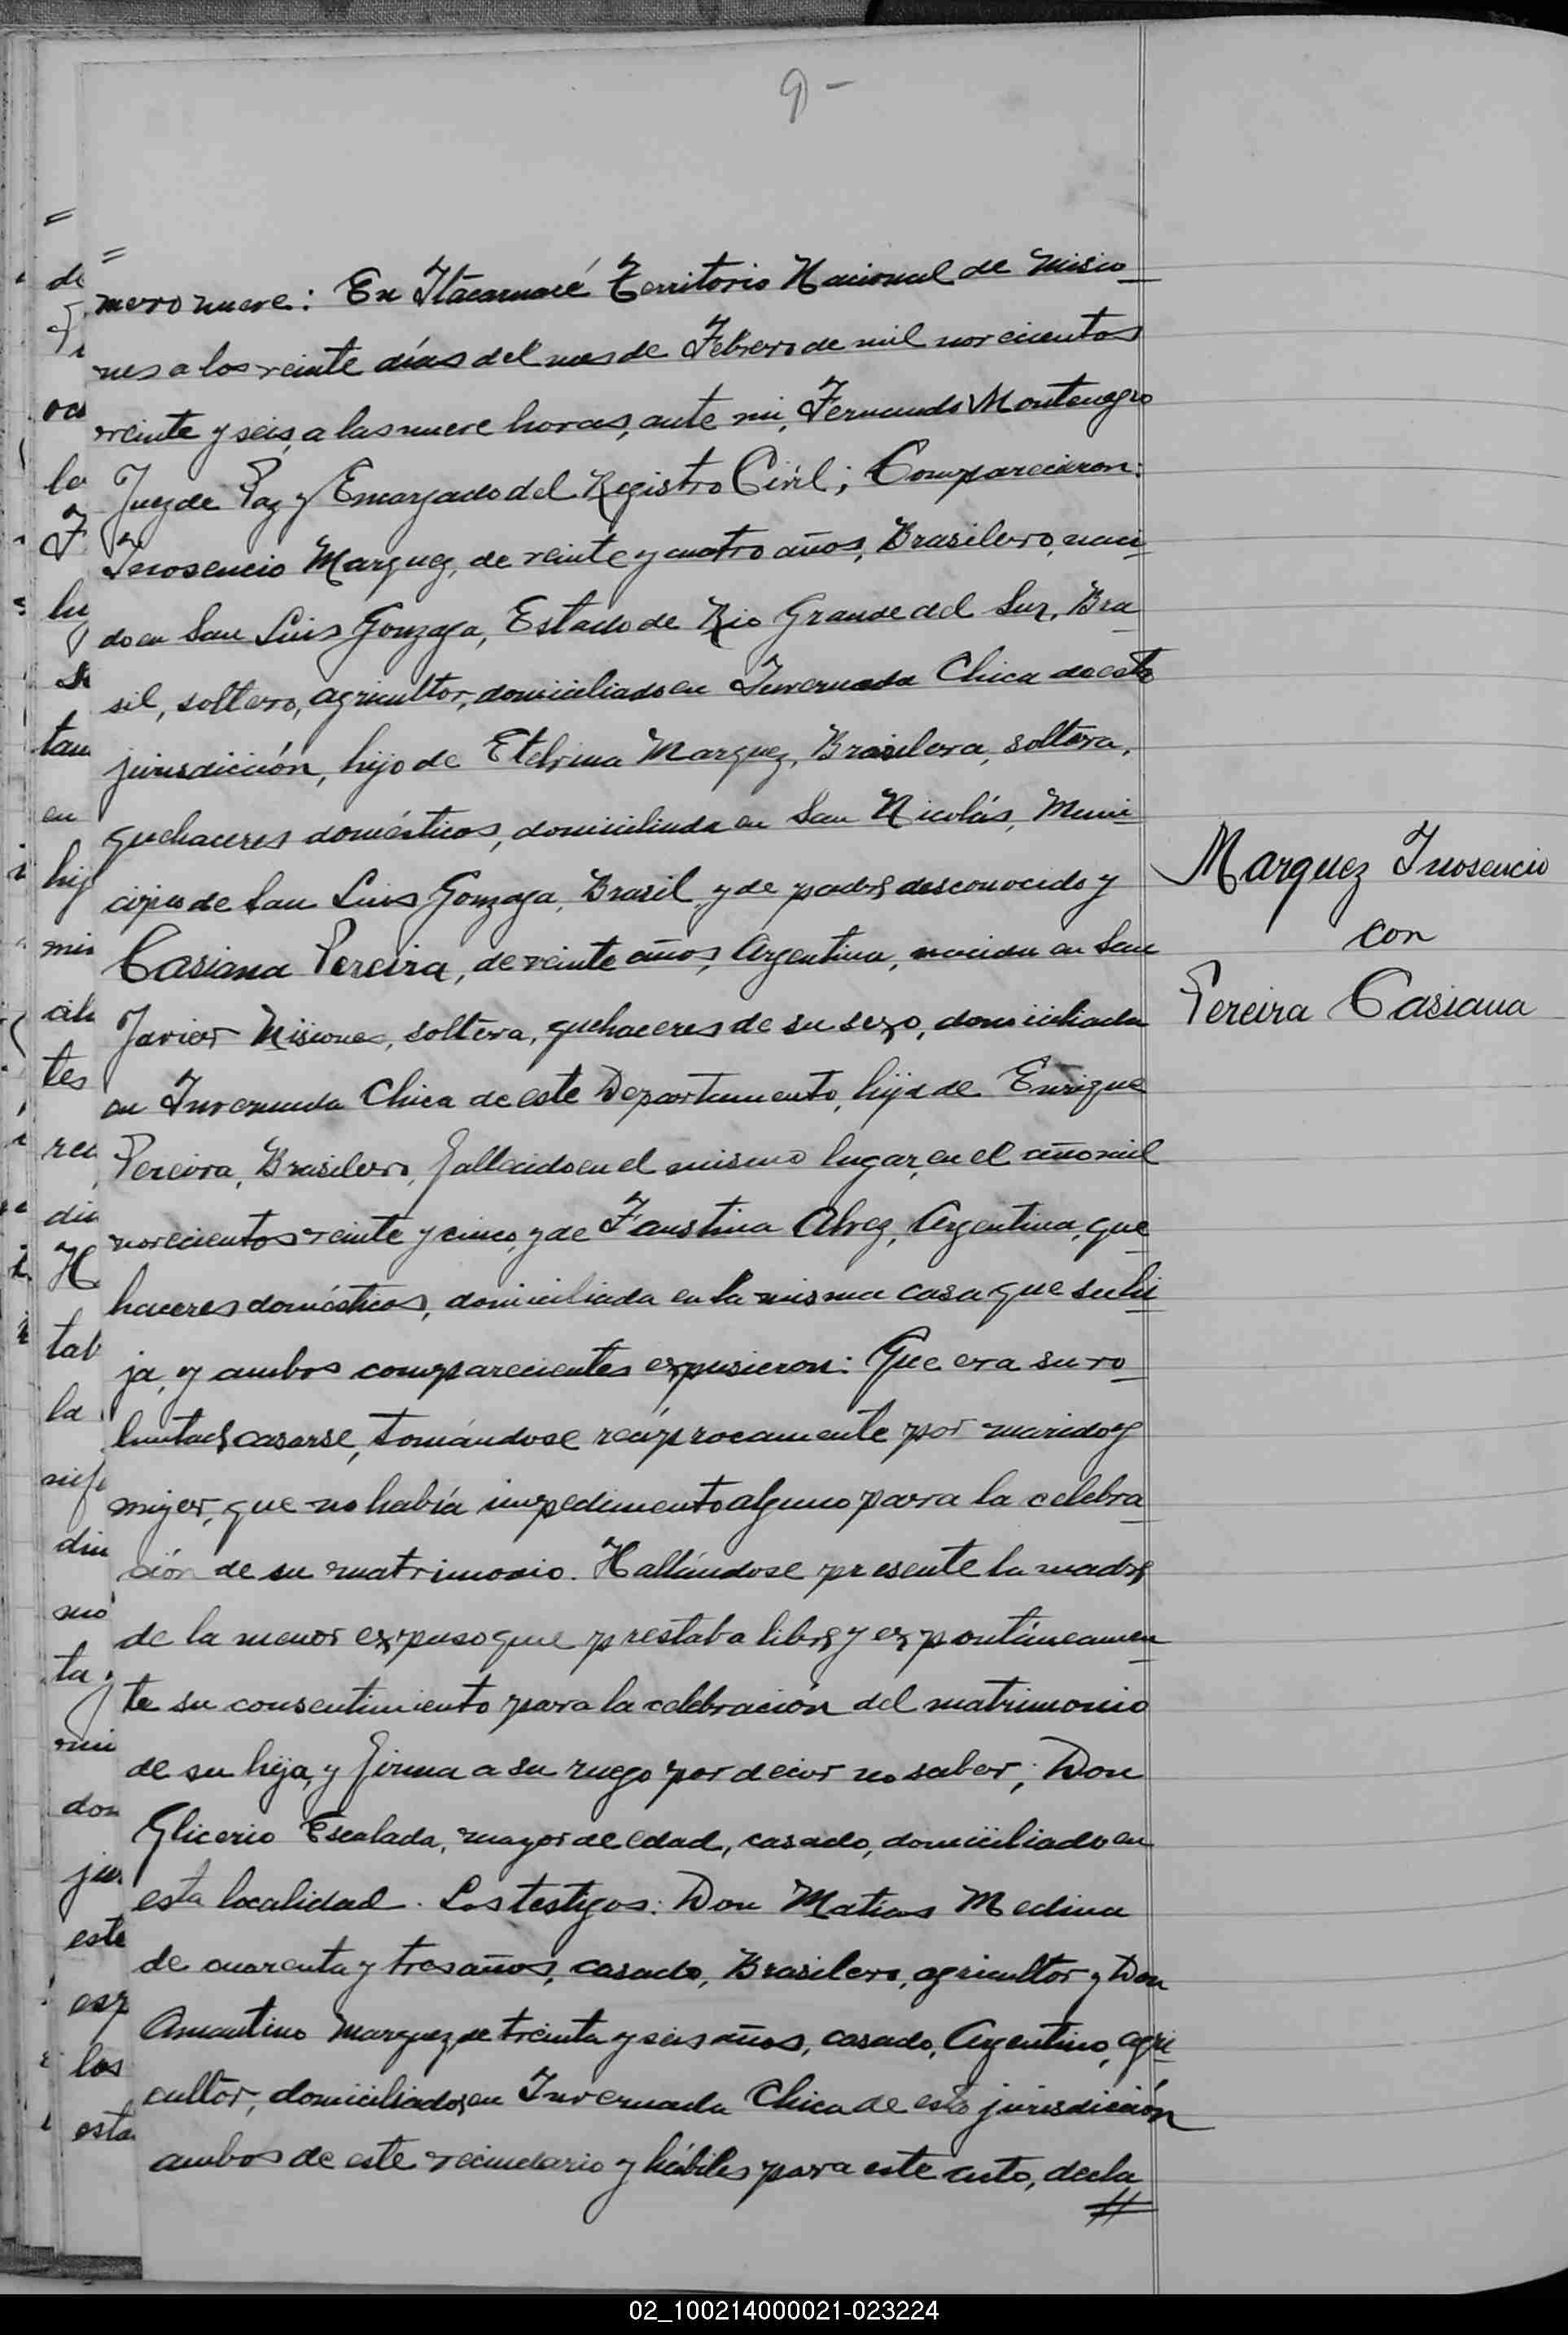 9-
=
mero nueve: En Itacaruaré Territorio Nacional de Misio
nes a los veinte días del mes de Febrero de mil novecientos
veinte y seis, a las nueve horas, ante mi, Fernando Montenegro
Juez de Paz y Encargado del Registro Civil; Comparecieron:
Inosencio Marquez, de veinte y cuatro años, Brasilero, naci
do en San Luis Gonzaga, Estado de Rio Grande del Sur, Bra
sil, soltero, agricultor, domiciliado en Invernada Chica de esta
jurisdicción, hijo de Etelvina Marquez, Brasilera, soltera,
quehaceres domésticos, domiciliada en San Nicolás, Muni
cipio de San Luis Gonzaga, Brasil, y de padre desconocido y
Casiana Pereira, de veinte años, Argentina, nacida en San
Javier Misiones, soltera, quehaceres de su sexo, domiciliada
en Invernada Chica de este Departamento, hija de Enrique
Pereira, Brasilero, fallecido en el mismo lugar, en el año mil
novecientos veinte y cinco, y de Faustina Alvez, Argentina, que
haceres domésticos, domiciliada en la misma casa que su hi
ja, y ambos comparecientes expusieron: Que era su vo
luntad casarse, tomándose recíprocamente por marido y
mujer, que no había impedimento alguno para la celebra
ción de su matrimonio. Hallándose presente la madre
de la menor expuso que prestaba libre y expontáneamen
te su consentimiento para la celebración del matrimonio
de su hija, y firma a su ruego por decir no saber; Don
Glicerio Escalada, mayor de edad, casado, domiciliado en
esta localidad. Los testigos: Don Matias Medina
de cuarenta y tres años, casado, Brasilero, agricultor y Don
Amantino Marquez, de treinta y seis años, casado, Argentino, agri
cultor, domiciliados en Invernada Chica de esta jurisdicción
ambos de este vecindario y hábiles para este acto, decla
//
Marquez Inosencio
con
Pereira Casiana
02_100214000021-023224